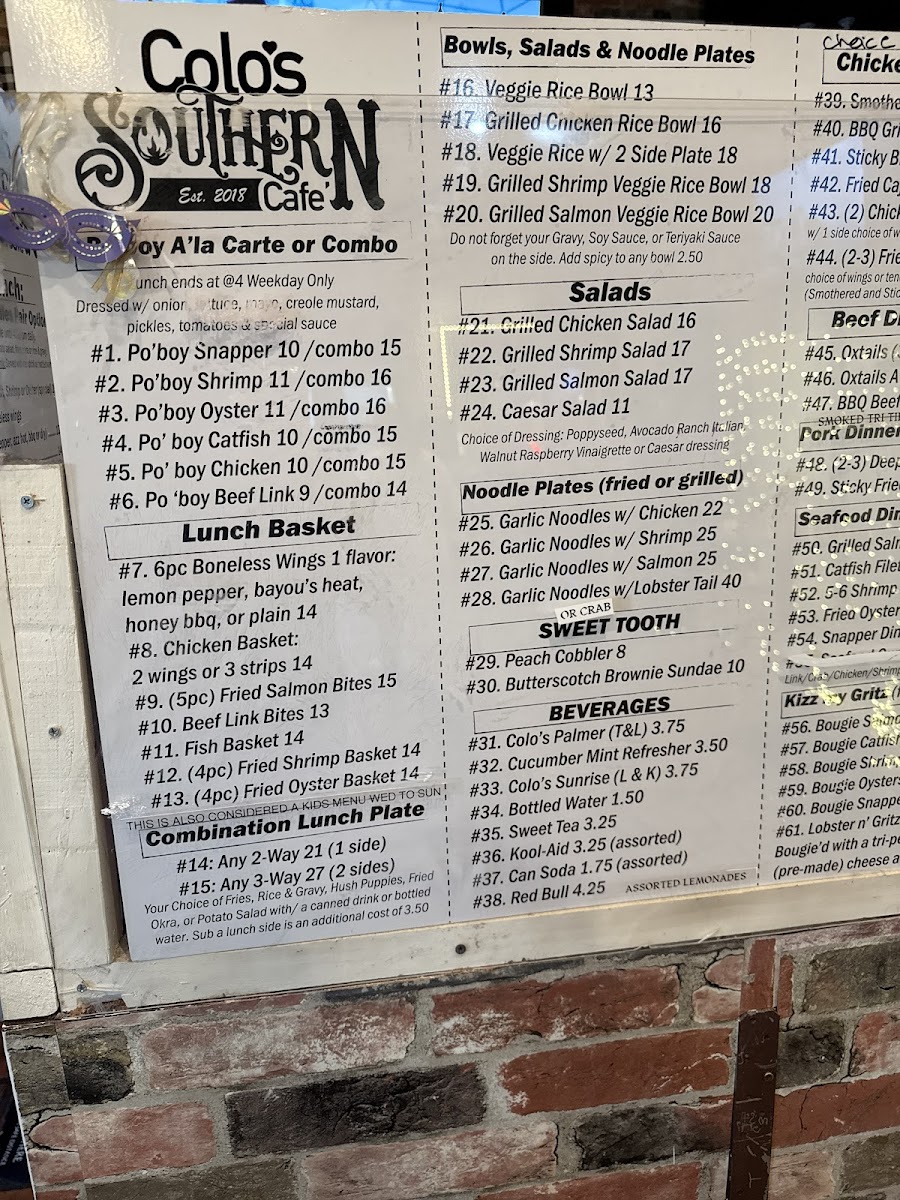 Colo's
Southern
Est. 2018
Cafe'
oy A'la Carte or Combo
unch ends at @4 Weekday Only
Dressed w/ onion, lettuce, mayo, creole mustard,
pickles, tomatoes & special sauce
#1. Po'boy Snapper 10 /combo 15
#2. Po'boy Shrimp 11 /combo 16
#3. Po'boy Oyster 11 /combo 16
#4. Po' boy Catfish 10 /combo 15
#5. Po' boy Chicken 10 /combo 15
#6. Po 'boy Beef Link 9 /combo 14
Lunch Basket
#7. 6pc Boneless Wings 1 flavor:
lemon pepper, bayou's heat,
honey bbq, or plain 14
#8. Chicken Basket:
2 wings or 3 strips 14
#9. (5pc) Fried Salmon Bites 15
#10. Beef Link Bites 13
#11. Fish Basket 14
#12. (4pc) Fried Shrimp Basket 14
#13. (4pc) Fried Oyster Basket 14
THIS IS ALSO CONSIDERED A KIDS MENU WED TO SUN
Combination Lunch Plate
#14: Any 2-Way 21 (1 side)
#15: Any 3-Way 27 (2 sides)
Your Choice of Fries, Rice & Gravy, Hush Puppies, Fried
Okra, or Potato Salad with/ a canned drink or bottled
water. Sub a lunch side is an additional cost of 3.50
Bowls, Salads & Noodle Plates
#16. Veggie Rice Bowl 13
#17 Grilled Chicken Rice Bowl 16
#18. Veggie Rice w/ 2 Side Plate 18
#19. Grilled Shrimp Veggie Rice Bowl 18
#20. Grilled Salmon Veggie Rice Bowl 20
Do not forget your Gravy, Soy Sauce, or Teriyaki Sauce
on the side. Add spicy to any bowl 2.50
Salads
#21. Grilled Chicken Salad 16
#22. Grilled Shrimp Salad 17
#23. Grilled Salmon Salad 17
#24. Caesar Salad 11
Choice of Dressing: Poppyseed, Avocado Ranch Italian,
Walnut Raspberry Vinaigrette or Caesar dressing
Noodle Plates (fried or grilled)
#25. Garlic Noodles w/ Chicken 22
#26. Garlic Noodles w/ Shrimp 25
#27. Garlic Noodles w/ Salmon 25
#28. Garlic Noodles w/Lobster Tail 40
OR CRAB
SWEET TOOTH
#29. Peach Cobbler 8
#30. Butterscotch Brownie Sundae 10
BEVERAGES
#31. Colo's Palmer (T&L) 3.75
#32. Cucumber Mint Refresher 3.50
#33. Colo's Sunrise (L & K) 3.75
#34. Bottled Water 1.50
#35. Sweet Tea 3.25
#36. Kool-Aid 3.25 (assorted)
#37. Can Soda 1.75 (assorted)
#38. Red Bull 4.25 ASSORTED LEMONADES
choice
Chicke
#39. Smothe
#40. BBQ Gri
#41. Sticky B
#42. Fried Ca
#43. (2) Chick
w/ 1 side choice of w
#44. (2-3) Frie
choice of wings or ten
(Smothered and Stic
Beef Di
#45. Oxtails (
#46. Oxtails A
#47. BBQ Beef
SMOKED TRI TIP
Pork Dinner
#48. (2-3) Deep
#49. Sticky Frie
Seafood Din
#50. Grilled Saln
#51. Catfish Filet
#52. 5-6 Shrimp
#53. Fried Oyster
#54. Snapper Din
Link/Crab/Chicken/Shrimp
Kizz My Gritz
#56. Bougie Salmo
#57. Bougie Catfish
#58. Bougie Shrim
#59. Bougie Oysters
#60. Bougie Snappe
#61. Lobster n' Gritz
Bougie'd with a tri-pe
(pre-made) cheese a